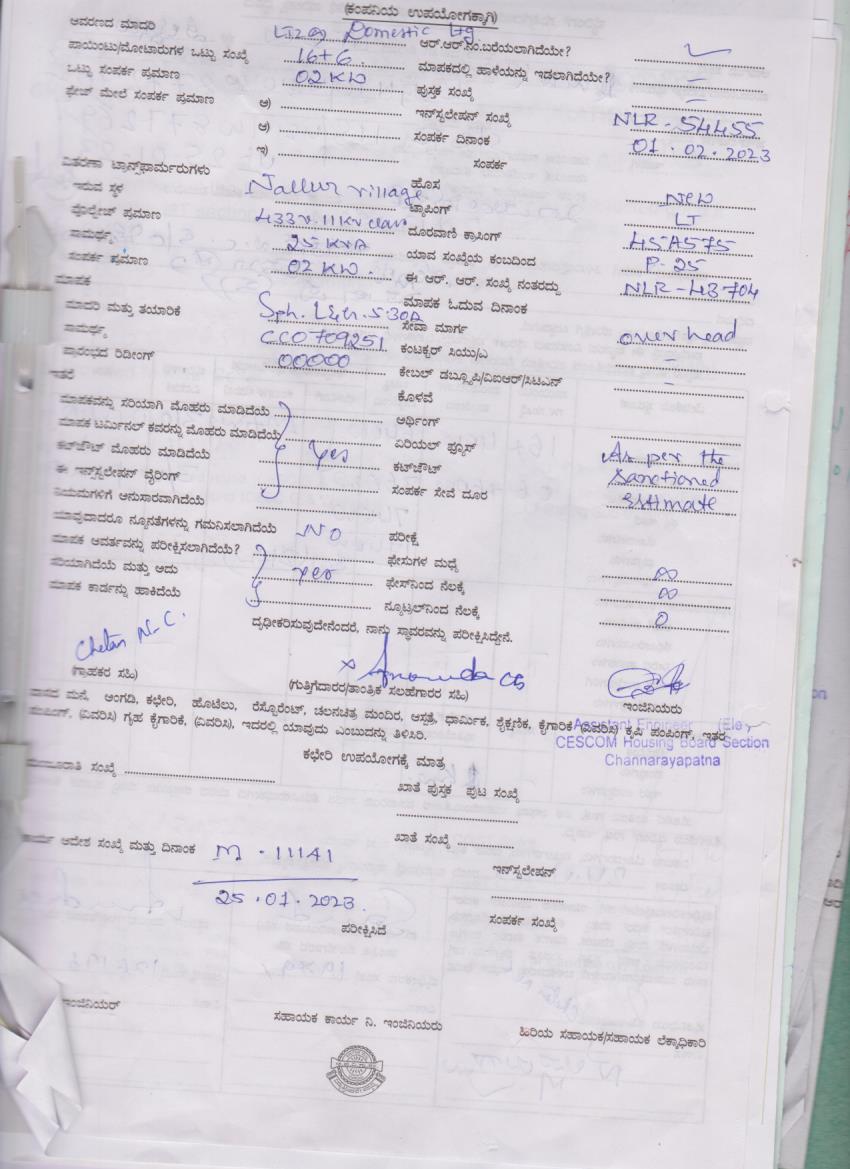 (ಕಂಪನಿಯ ಉಪಯೋಗಕ್ಕಾಗಿ)
ಆವರಣದ ಮಾದರಿ Domestic Ltg. ಆರ್.ಆರ್.ನಂ.ಬರೆಯಲಾಗಿದೆಯೇ?
ಪಾಯಿಂಟು/ಮೋಟಾರುಗಳ ಒಟ್ಟು ಸಂಖ್ಯೆ 16+6 ಮಾಪಕದಲ್ಲಿ ಹಾಳೆಯನ್ನು ಇಡಲಾಗಿದೆಯೇ? –
ಒಟ್ಟು ಸಂಪರ್ಕ ಪ್ರಮಾಣ 02 KW ಪುಸ್ತಕ ಸಂಖ್ಯೆ –
ಫೇಜ್ ಮೇಲೆ ಸಂಪರ್ಕ ಪ್ರಮಾಣ ಅ) ಇನ್‌ಸ್ಟಲೇಷನ್ ಸಂಖ್ಯೆ NLR-54455
ಆ) ಸಂಪರ್ಕ ದಿನಾಂಕ 01.02.2023
ಇ) ಸಂಪರ್ಕ
ವಿತರಣಾ ಟ್ರಾನ್ಸ್‌ಫಾರ್ಮರುಗಳು ಹೊಸ New
ಇರುವ ಸ್ಥಳ Nallur village ಟ್ಯಾಪಿಂಗ್ LT
ವೋಲ್ಟೇಜ್ ಪ್ರಮಾಣ 433v-11Kv class ದೂರವಾಣಿ ಕ್ರಾಸಿಂಗ್ 45A575
ಸಾಮರ್ಥ್ಯ 25 KVA ಯಾವ ಸಂಖ್ಯೆಯ ಕಂಬದಿಂದ P-25
ಸಂಪರ್ಕ ಪ್ರಮಾಣ 02 KW. ಈ ಆರ್. ಆರ್. ಸಂಖ್ಯೆ ನಂತರದ್ದು NLR-43704
ಮಾಪಕ ಮಾಪಕ ಓದುವ ದಿನಾಂಕ
ಮಾದರಿ ಮತ್ತು ತಯಾರಿಕೆ Sph. L&t. 5-30A ಸೇವಾ ಮಾರ್ಗ over head
ಸಾಮರ್ಥ್ಯ CC0709251 ಕಂಟಕ್ಟರ್ ಸಿಯು/ಎ –
ಪ್ರಾರಂಭದ ರಿಡಿಂಗ್ 00000 ಕೇಬಲ್ ಡಬ್ಲ್ಯೂಪಿ/ವಿಐಆರ್/ಸಿಟಿಎನ್ –
ಇತರೆ ಕೊಳವೆ
ಮಾಪಕವನ್ನು ಸರಿಯಾಗಿ ಮೊಹರು ಮಾಡಿದೆಯೆ ಅರ್ಥಿಂಗ್
ಮಾಪಕ ಟರ್ಮಿನಲ್ ಕವರನ್ನು ಮೊಹರು ಮಾಡಿದೆಯೆ Yes ಏರಿಯಲ್ ಫ್ಯೂಸ್ As per the
ಕಟ್‌ಔಟ್ ಮೊಹರು ಮಾಡಿದೆಯೆ ಕಟ್‌ಔಟ್ Sanctioned
ಈ ಇನ್‌ಸ್ಟಲೇಷನ್ ವೈರಿಂಗ್ ಸಂಪರ್ಕ ಸೇವೆ ದೂರ estimate
ನಿಯಮಗಳಿಗೆ ಅನುಸಾರವಾಗಿದೆಯೆ
ಯಾವುದಾದರೂ ನ್ಯೂನತೆಗಳನ್ನು ಗಮನಿಸಲಾಗಿದೆಯೆ No ಪರೀಕ್ಷೆ
ಮಾಪಕ ಆವರ್ತವನ್ನು ಪರೀಕ್ಷಿಸಲಾಗಿದೆಯೆ? ಫೇಸುಗಳ ಮಧ್ಯೆ ∞
ಸರಿಯಾಗಿದೆಯೆ ಮತ್ತು ಅದು yes ಫೇಸ್‌ನಿಂದ ನೆಲಕ್ಕೆ ∞
ಮಾಪಕ ಕಾರ್ಡನ್ನು ಹಾಕಿದೆಯೆ ನ್ಯೂಟ್ರಲ್‌ನಿಂದ ನೆಲಕ್ಕೆ 0
ದೃಢೀಕರಿಸುವುದೇನೆಂದರೆ, ನಾನು ಸ್ಥಾವರವನ್ನು ಪರೀಕ್ಷಿಸಿದ್ದೇನೆ.
Chetan N.C.
(ಗ್ರಾಹಕರ ಸಹಿ) (ಗುತ್ತಿಗೆದಾರರ/ತಾಂತ್ರಿಕ ಸಲಹೆಗಾರರ ಸಹಿ) ಇಂಜಿನಿಯರು
ವಾಸದ ಮನೆ, ಅಂಗಡಿ, ಕಛೇರಿ, ಹೊಟೆಲು, ರೆಸ್ಟೋರೆಂಟ್, ಚಲನಚಿತ್ರ ಮಂದಿರ, ಆಸ್ಪತ್ರೆ, ಧಾರ್ಮಿಕ, ಶೈಕ್ಷಣಿಕ, ಕೈಗಾರಿಕೆ (ವಿವರಿಸಿ) ಕೃಷಿ ಪಂಪಿಂಗ್, ಇತರ
ಪಂಪಿಂಗ್, (ವಿವರಿಸಿ) ಗೃಹ ಕೈಗಾರಿಕೆ, (ವಿವರಿಸಿ), ಇದರಲ್ಲಿ ಯಾವುದು ಎಂಬುದನ್ನು ತಿಳಿಸಿರಿ.
Assistant Engineer (Ele)
CESCOM Housing Board Section
Channarayapatna
ಕಛೇರಿ ಉಪಯೋಗಕ್ಕೆ ಮಾತ್ರ
ಸಂಖ್ಯೆ ಖಾತೆ ಪುಸ್ತಕ ಪುಟ ಸಂಖ್ಯೆ
ಆದೇಶ ಸಂಖ್ಯೆ ಮತ್ತು ದಿನಾಂಕ M-11141 ಖಾತೆ ಸಂಖ್ಯೆ
25.01.2023. ಇನ್‌ಸ್ಟಲೇಷನ್
ಸಂಪರ್ಕ ಸಂಖ್ಯೆ
ಪರೀಕ್ಷಿಸಿದೆ
ಇಂಜಿನಿಯರ್ ಸಹಾಯಕ ಕಾರ್ಯ ನಿ. ಇಂಜಿನಿಯರು ಹಿರಿಯ ಸಹಾಯಕ/ಸಹಾಯಕ ಲೆಕ್ಕಾಧಿಕಾರಿ